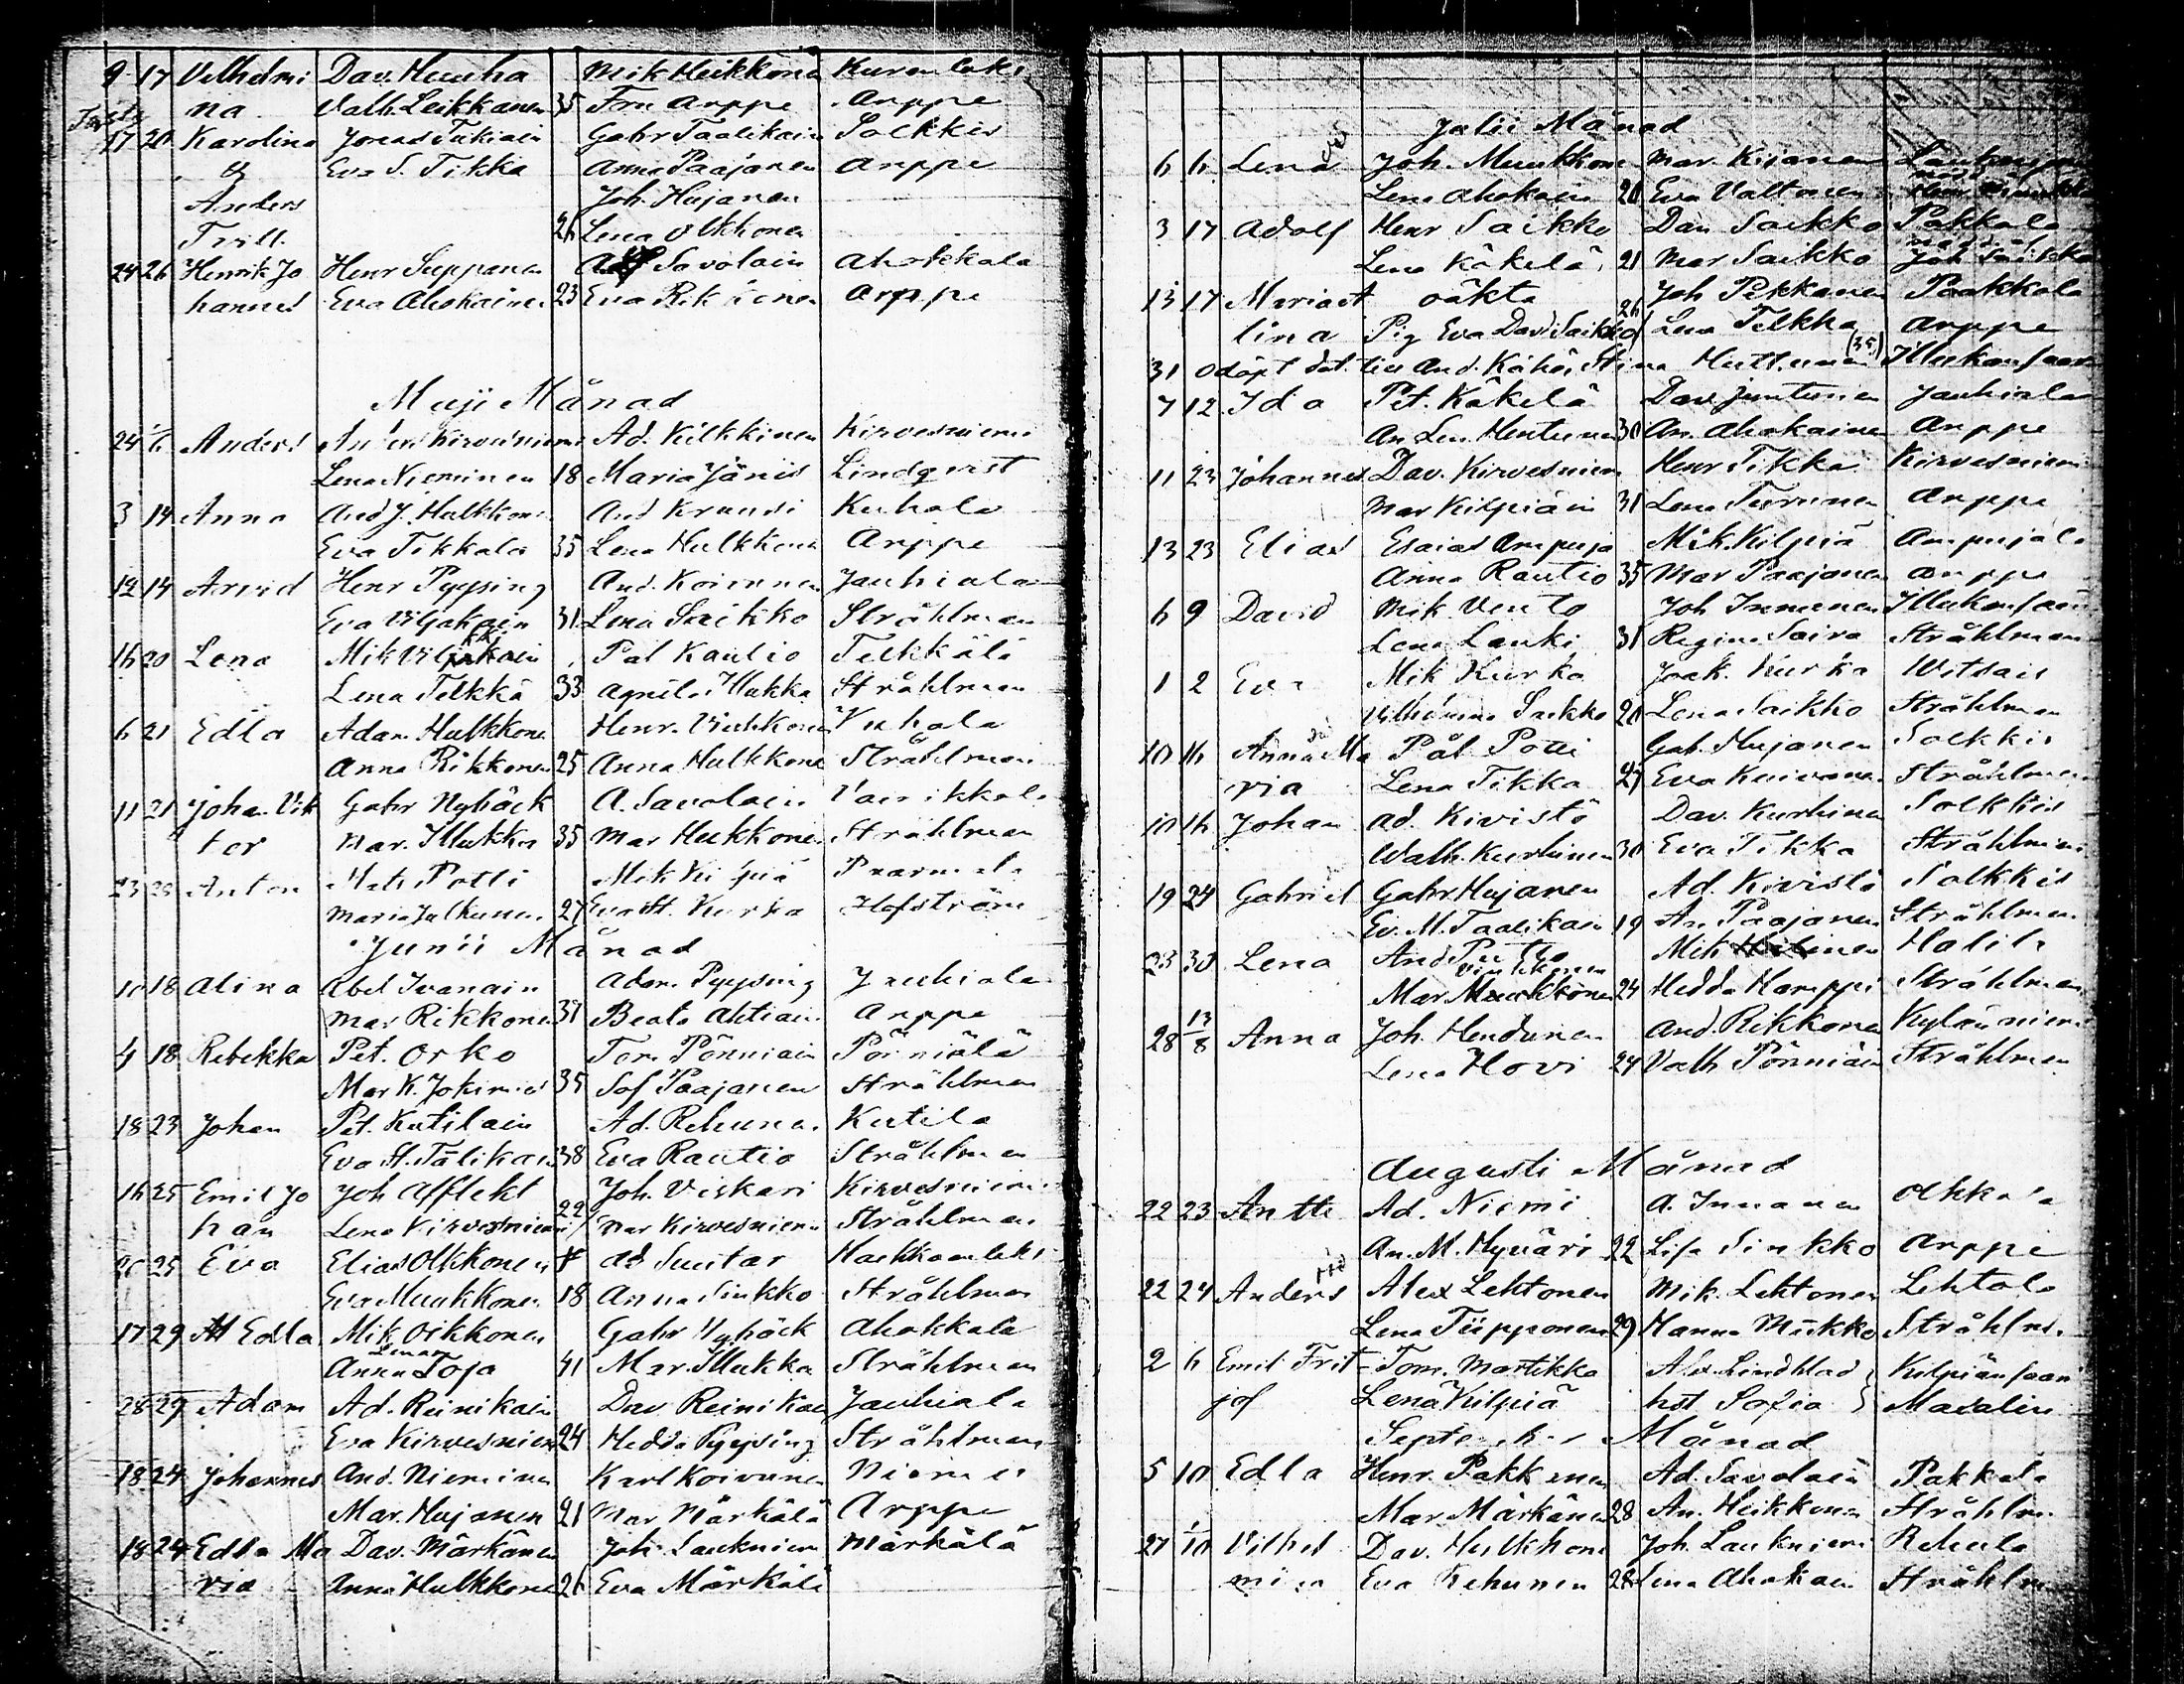 9 17 Vilhelmi Dav. Huuha Mik Heikkone Kurenlaks
na Valb. Leikkanen 35 Tom Arppe Arppe
17 20 Karolina Jonas Tukiain Gabr Taalikain Solkkis
& Eva S. Tikka Anna Paajanen Arppe
Anders Joh. Hujanen
Tvill. 26 Lena Olkkonen
24 26 Henrik Jo Henr Seppänen Savolain Ahokkala
hannes Eva Ahokainen 23 Eva Rikkonen Arppe
Maji Månad
24 6 Anders Anders Kirvesniemi Ad. Kilkkinen Kirvesniemi
Lena Nieminen 18 Maria Jänis Lindqvist
3 14 Anna And J. Hulkkone And Kruusi Kuhala
Eva Tikkala 35 Lena Hulkkone Arppe
12 14 Arvid Henr Pyysing And. Koivunen Jauhiala
Eva Viljakain 31 Lena Saikko Stråhlman
16 20 Lena Mik Pål Rautio Telkkälä
Lena Telkkä 33 Agneta Illukka Stråhlman
6 21 Edla Adam Hulkkone Henr. Kuhala
Anna Rikkonen 25 Anna Hulkkone Stråhlman
11 21 Johan Vik Gabr Nybäck A. Savolain
tor Mar. Illukka 35 Mar Hukkonen Stråhlman
23 Anton Mats Potti Mik Kilpiä
Maria Julkunen 27 Eva St. Kurka Hofström
Junii Månad
10 18 Alina Abel Ivanain Adam Pyysing Jauhiala
Mar Rikkonen 31 Beata Ahtiain Arppe
4 18 Rebekka Pet. Orko Tom Pönniäin Pönniälä
Mar K. Jokimies 35 Sof Paajanen Stråhlman
18 23 Johan Pet. Kutilain Ad. Rehunen Kutila
Eva St. Tälikain 38 Eva Rautio Stråhlman
16 25 Emil Jo Joh Afflekt Joh. Viskari Kirvesniemi
han Lena Kirvesniemi 22 Mar Kirvesniemi Stråhlman
20 25 Eva Elias Olkkonen Ad Suutar
Eva Muukkonen 18 Anna Sinkko Stråhlman
17 29 Edla Mik Oikkonen Gabr Nybäck Ahokkala
Anna Toja 41 Mar. Illukka Stråhlman
28 29 Adam Ad. Reinikain Dav Reinikain Jauhiala
Eva Kirvesniem 24 Hedda Pyysing Stråhlman
18 24 Johannes And. Nieminen Karl Koivunen Niemis
Mar. Hujanen 21 Mar Märkälä Arppe
18 24 Edla Ma Dav. Märkänen Joh. Laukniem Märkälä
ria Anna Hulkkone 26 Eva Märkälä
Julii Månad
6 6 Lena Joh. Muukkone Mar. Kijanen
Lena Ahokain 20 Eva Valtonen
3 17 Adolf Henr Saikko Dav Saikko Pakkala
Lena Käkelä 21 Mar Saikko Joh Saikko
13 17 Maria A oäkta 26 Joh Pekkanen Paakkola
lina Pig Eva Dav. Saikko Lena Telkkä Arppe
31 Odöpt dot. till And. Kähär, Stina Huttunen (35) Illukansaari
7 12 Ida Pet. Käkelä Dav Juntunen Jauhiala
An. Len. Hentunen 30 An. Ahokainen Arppe
11 23 Johannes Dav. Kirvesniem Henr Tikka Kirvesniemi
Mar Kilpiäin 31 Lena Turunen Arppe
13 23 Elias Esaias Ampuja Mik. Kilpiä Ampujala
Anna Rautio 35 Mar Paajanen Arppe
6 9 David Mik Vento Joh Inmanen Illukansaari
Lena Lauki 31 Regina Saira Stråhlman
1 2 Eva Mik Kurka Joak. Kurka Witsais
Vilhelmina Saikko 20 Lena Saikko Stråhlman
10 16 Anna Ma Pål Potti Gab. Hujanen Solkkis
ria Lena Tikka 27 Eva Kaivanen Stråhlman
10 16 Johan Ad. Kivistö Dav. Kurhinen Solkkis
Walb. Kurhinen 30 Eva Tikka Stråhlman
19 24 Gabriel Gabr Hujanen Ad. Kivistö Solkkis
Ev. M. Taalikain 19 An. Paajanen Stråhlman
23 30 Lena And. Mik Halila
Mar. Muukkonen 24 Hedda Kamppi Stråhlman
28 13/8 Anna Joh. Hendunen And. Rikkonen Kyläniemi
Lena Hovi 24 Valb Pönniäin Stråhlman
Augusti Månad
22 23 Antti Ad. Niemi A. Inmanen Olkkala
An. M. Hyväri 22 Lisa Sinkko Arppe
22 24 Anders Alex Lehtonen Mik. Lehtonen Lehtola
Lena Tiipponen 29 Hanna Mikko Stråhlm.
2 6 Emil Frit Tom. Martikka Alex. Lindblad Kilpiänsaari
jof Lena Kilpiä hst Sofia Masalin
September Månad
5 10 Edla Henr. Pakkanen Ad. Savolain Pakkala
Mar Märkänen 28 An. Heikkonen Stråhlm.
27 1/10 Vilhel Dav. Hulkkone Joh. Laukniemi Rehula
mina Eva Rehunen 28 Lena Ahokain Stråhlm